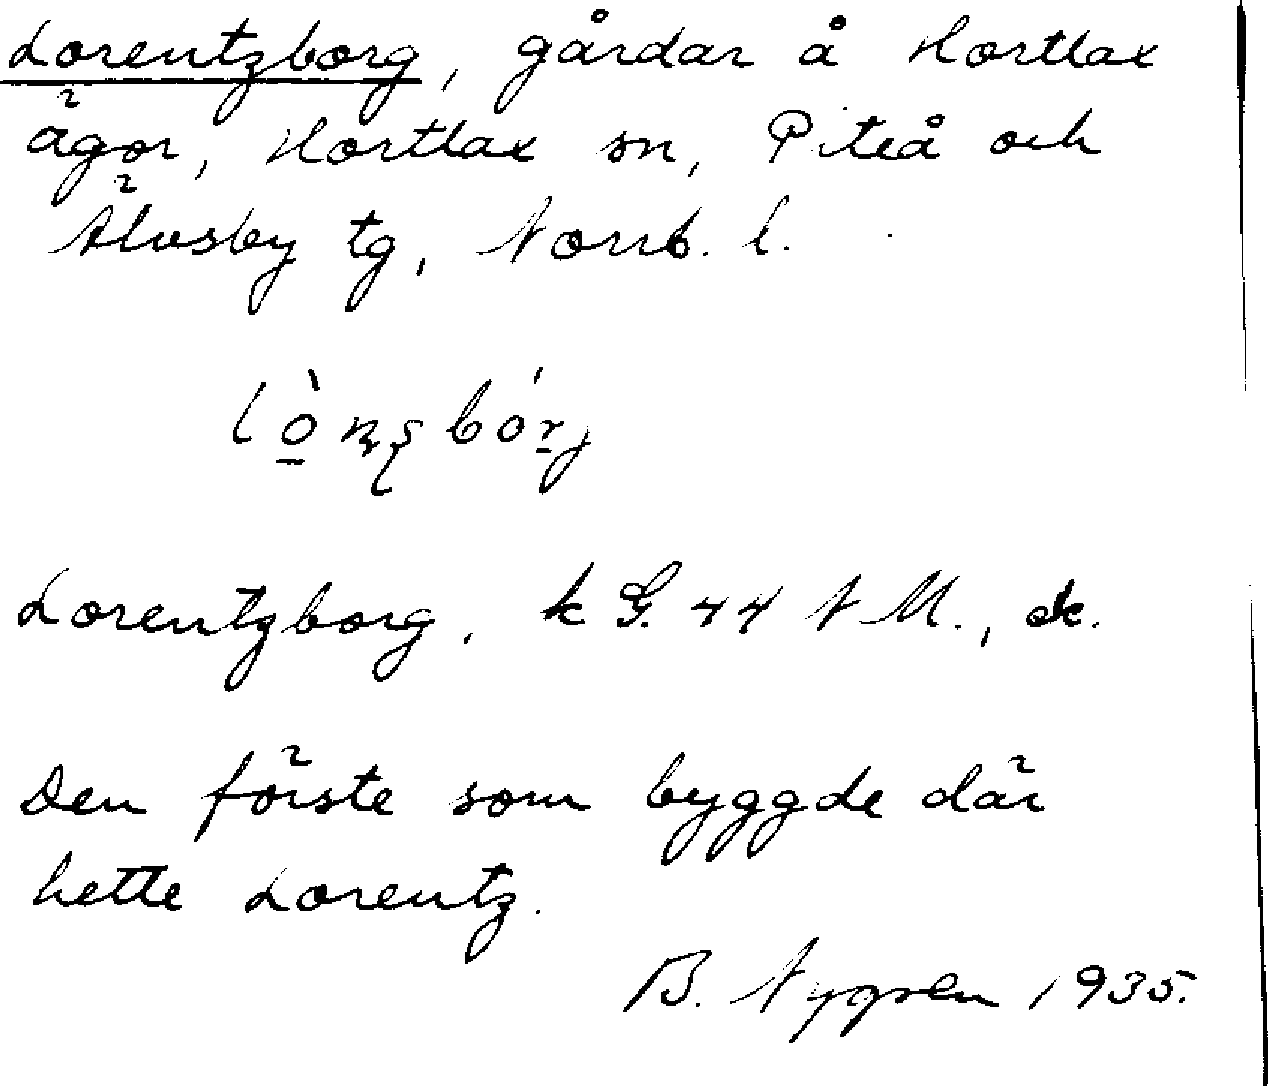 Lorentzborg, gårdar å Hortlax
ägor, Hortlax sn, Piteå och
Älvsby tg, Norrb. l.
Lorentzborg. k G. 44 N M., ek.
Den förste som byggde där
hette Lorentz.
B. Nygren 1935.